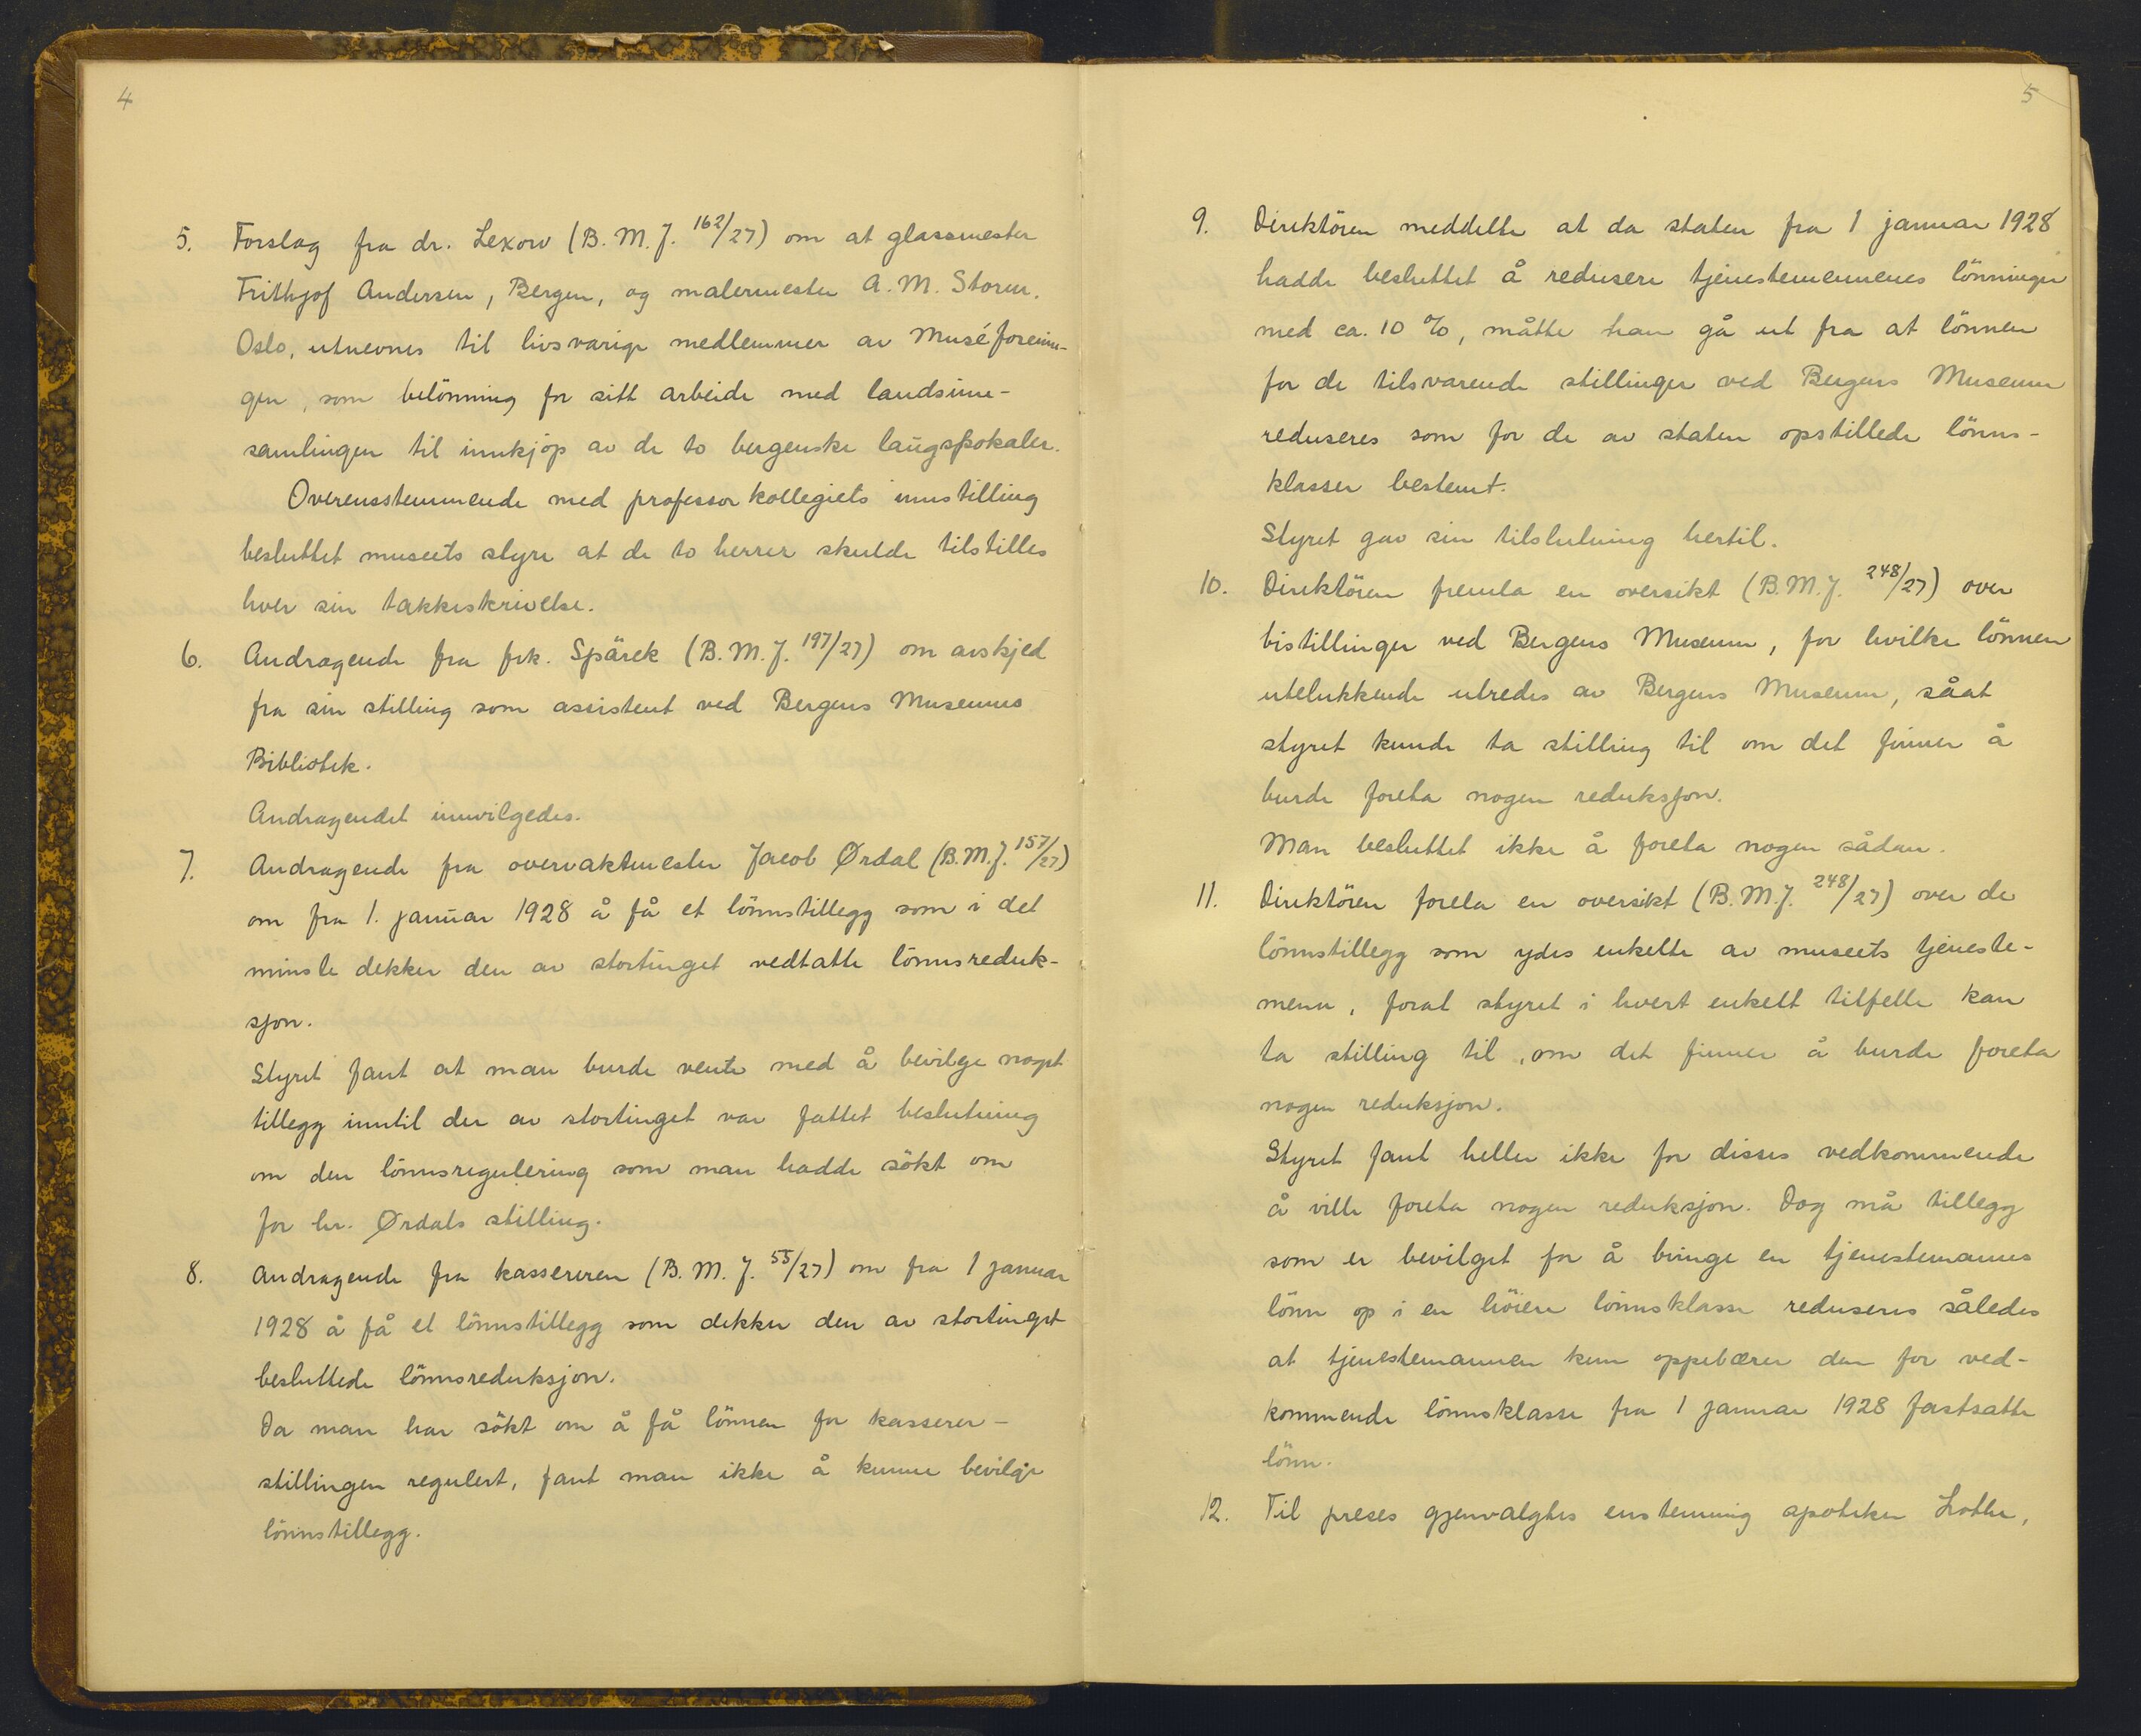 4
5. Forslag fra dr. Lexow (B. M. J. 162/27) om at glassmester
Frithjof Andersen, Bergen, og malermester A. M. Storm,
Oslo, utnevnes til livsvarige medlemmer av Muséforenin-
gen, som belönning for sitt arbeide med landsinn-
samlingen til innkjöp av de to bergenske laugspokaler.
Overensstemmende med professorkollegiets innstilling
besluttet museets styre at de to herrer skulde tilstilles
hver sin takkeskrivelse.
6. Andragende fra frk. Spärck (B. M. J. 197/27) om avskjed
fra sin stilling som assistent ved Bergens Museums
Bibliotek.
Andragendet innvilgedes.
7. Andragende fra overvaktmester Jacob Ørdal (B. M. J. 157/27)
om fra 1. januar 1928 å få et lönnstillegg som i det
minste dekker den av stortinget vedtatte lönnsreduk-
sjon.
Styret fant at man burde vente med å bevilge noget
tillegg inntil der av stortinget var fattet beslutning
om den lönnsregulering som man hadde sökt om
for hr. Ørdals stilling.
8. Andragende fra kassereren (B. M. J. 55/27) om fra 1 januar
1928 å få et lönnstillegg som dekker den av stortinget
besluttede lönnsreduksjon.
Da man har sökt om å få lönnen for kasserer-
stillingen regulert, fant man ikke å kunne bevilge
lönnstillegg.
5
9. Direktören meddelte at da staten fra 1 januar 1928
hadde besluttet å redusere tjenestemennenes lönninger
med ca. 10 %, måtte han gå ut fra at lönnen
for de tilsvarende stillinger ved Bergens Museum
reduseres som for de av staten opstillede lönns-
klasser bestemt.
Styret gav sin tilslutning hertil.
10. Direktören fremla en oversikt (B. M. J. 248/27) over
bistillinger ved Bergens Museum, for hvilke lönnen
utelukkende utredes av Bergens Museum, såat
styret kunde ta stilling til om det finner å
burde foreta nogen reduksjon.
Man besluttet ikke å foreta nogen sådan.
11. Direktören forela en oversikt (B. M. J. 248/27) over de
lönnstillegg som ydes enkelte av museets tjeneste-
menn, forat styret i hvert enkelt tilfelle kan
ta stilling til, om det finner å burde foreta
nogen reduksjon.
Styret fant heller ikke for disses vedkommende
å ville foreta nogen reduksjon. Dog må tillegg
som er bevilget for å bringe en tjenestemanns
lönn op i en höiere lönnsklasse reduseres således
at tjenestemannen kun oppebærer den for ved-
kommende lönnsklasse fra 1 januar 1928 fastsatte
lönn.
12. Til preses gjenvalgtes enstemmig apoteker Lothe,